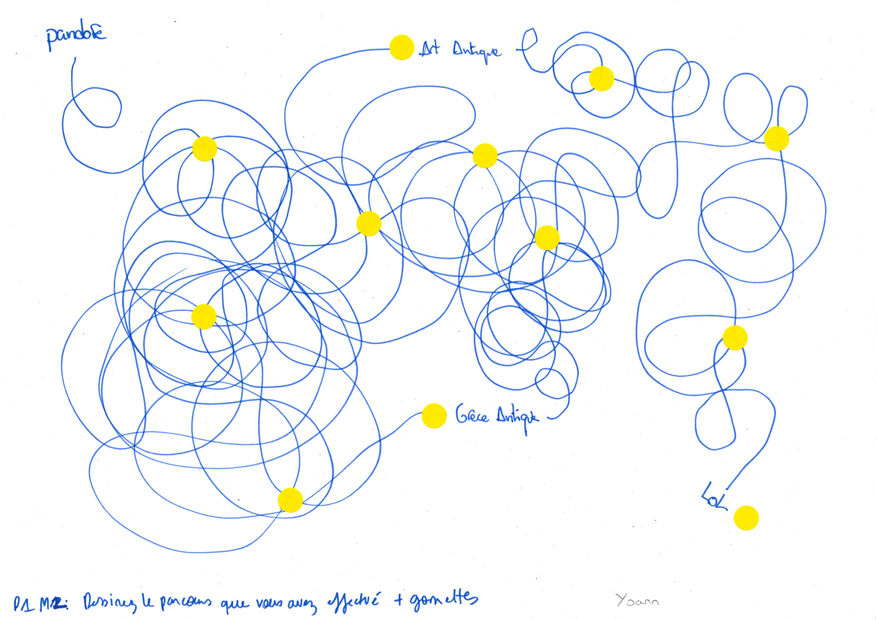 pandore
Art Antique
Grèce Antique
LOL
P1 M2: Dessinez le parcours que vous avez effectué + gomettes
Yoann